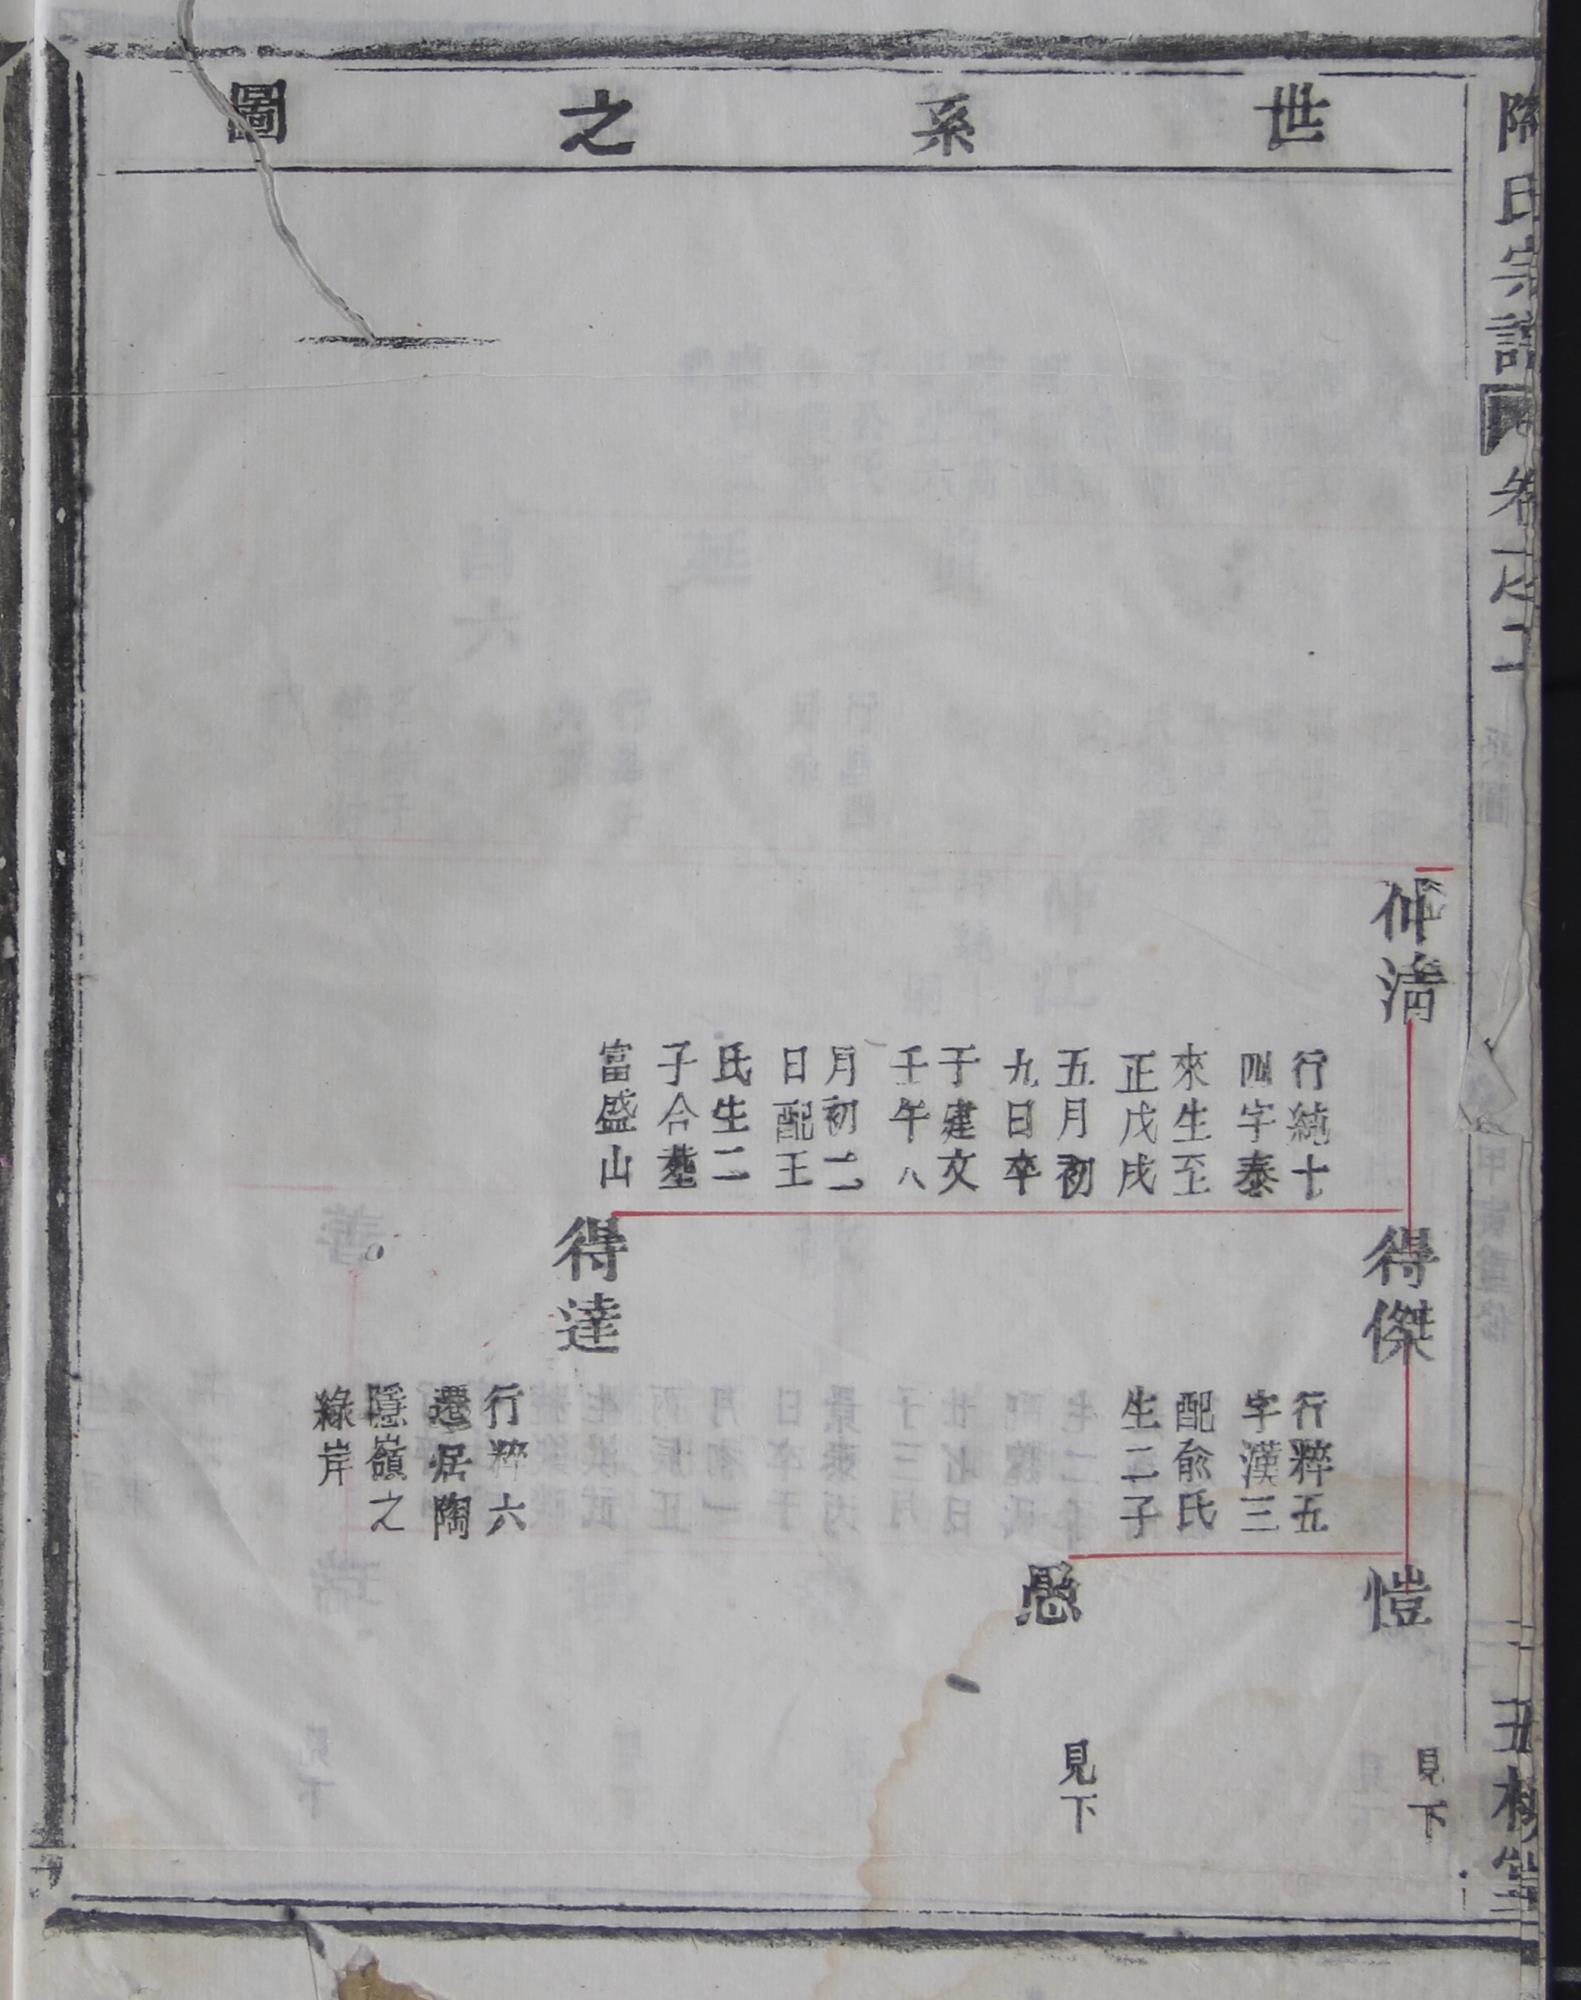 世系之圖
陶氏宗譜
卷之二
五柳堂
仲淸
行純十
四字泰
來生至
正戊戌
五月初
九日卒
于建文
壬午八
月初二
日配王
氏生二
子合塟
富盛山
得傑
行粹五
字漢三
配兪氏
生二子
得達
行粹六
遷居陶
隱嶺之
綠岸
愷
見下
愚
見下